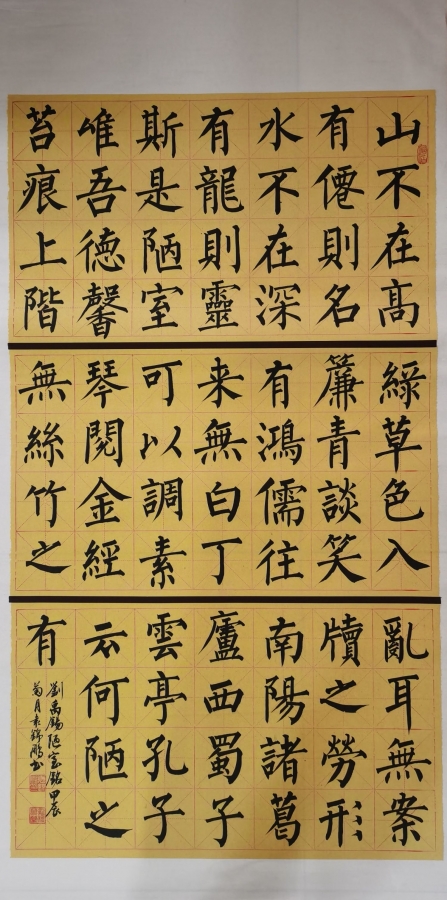 山不在高
有僊則名
水不在深
有龍則靈
斯是陋室
唯吾德馨
苔痕上階
綠草色入
簾青談笑
有鴻儒往
来無白丁
可以調素
琴閱金經
無絲竹之
亂耳無案
牘之勞形
南陽諸葛
廬西蜀子
雲亭孔子
云何陋之
有
劉禹錫陋室銘甲辰
菊月袁錦鵬书